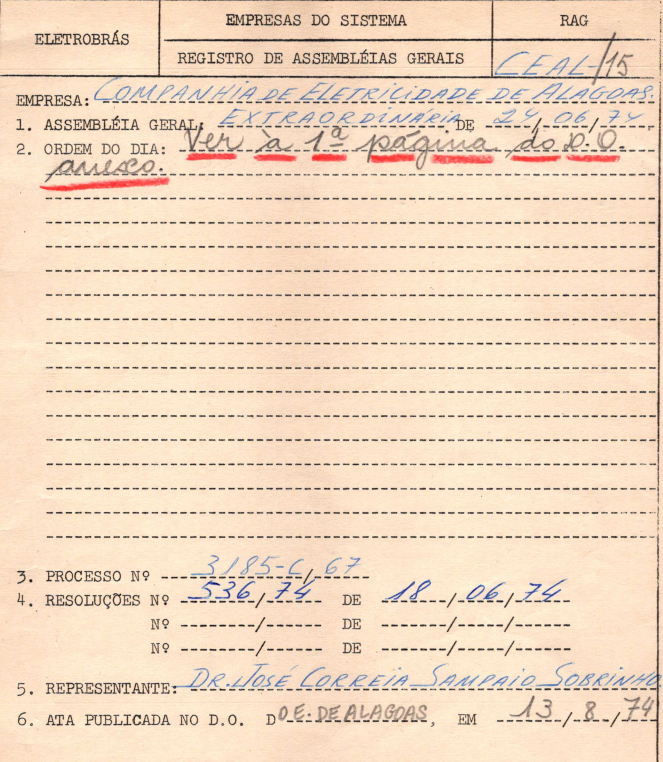 ELETROBRÁS
EMPRESAS DO SISTEMA
RAG
REGISTRO DE ASSEMBLÉIAS GERAIS
CEAL/15
EMPRESA: COMPANHIA DE ELETRICIDADE DE ALAGOAS.
1. ASSEMBLÉIA GERAL: EXTRAORDINÁRIA DE 24/06/74.
2. ORDEM DO DIA: Ver à 1ª página do D.O.
anexo.
3. PROCESSO Nº 3185-C/67
4. RESOLUÇÕES Nº 536/74 DE 18/06/74
Nº / DE / /
Nº / DE / /
5. REPRESENTANTE: DR. JOSÉ CORREIA SAMPAIO SOBRINHO
6. ATA PUBLICADA NO D.O. DO E. DE ALAGOAS, EM 13/8/74